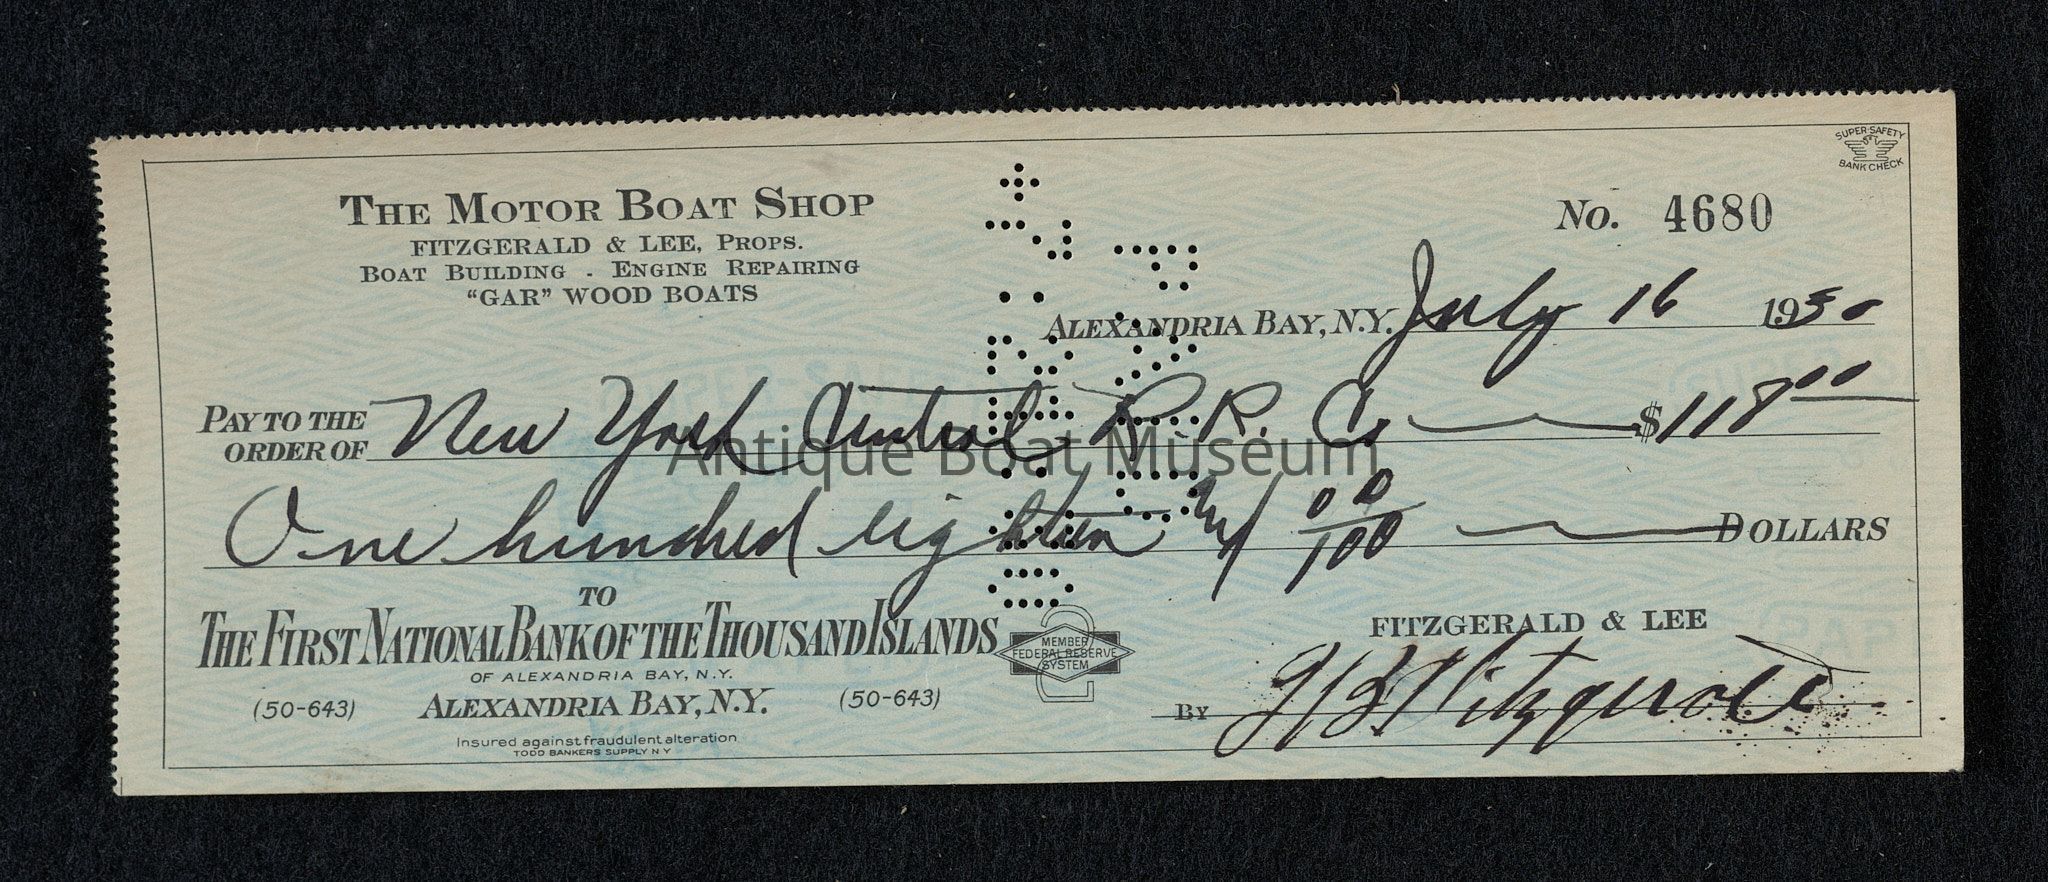 SUPER-SAFETY
BANK CHECK
THE MOTOR BOAT SHOP
FITZGERALD & LEE, PROPS.
BOAT BUILDING - ENGINE REPAIRING
"GAR" WOOD BOATS
No. 4680
ALEXANDRIA BAY, N.Y. July 16 1930
PAY TO THE ORDER OF New York Central R.R. Co $118 00
Antique Boat Museum
One hundred eighteen 00/100 DOLLARS
TO
THE FIRST NATIONAL BANK OF THE THOUSAND ISLANDS
OF ALEXANDRIA BAY, N.Y.
(50-643) ALEXANDRIA BAY, N.Y. (50-643)
Insured against fraudulent alteration
TODD BANKERS SUPPLY N Y
MEMBER
FEDERAL RESERVE
SYSTEM
FITZGERALD & LEE
BY Fitzgerald